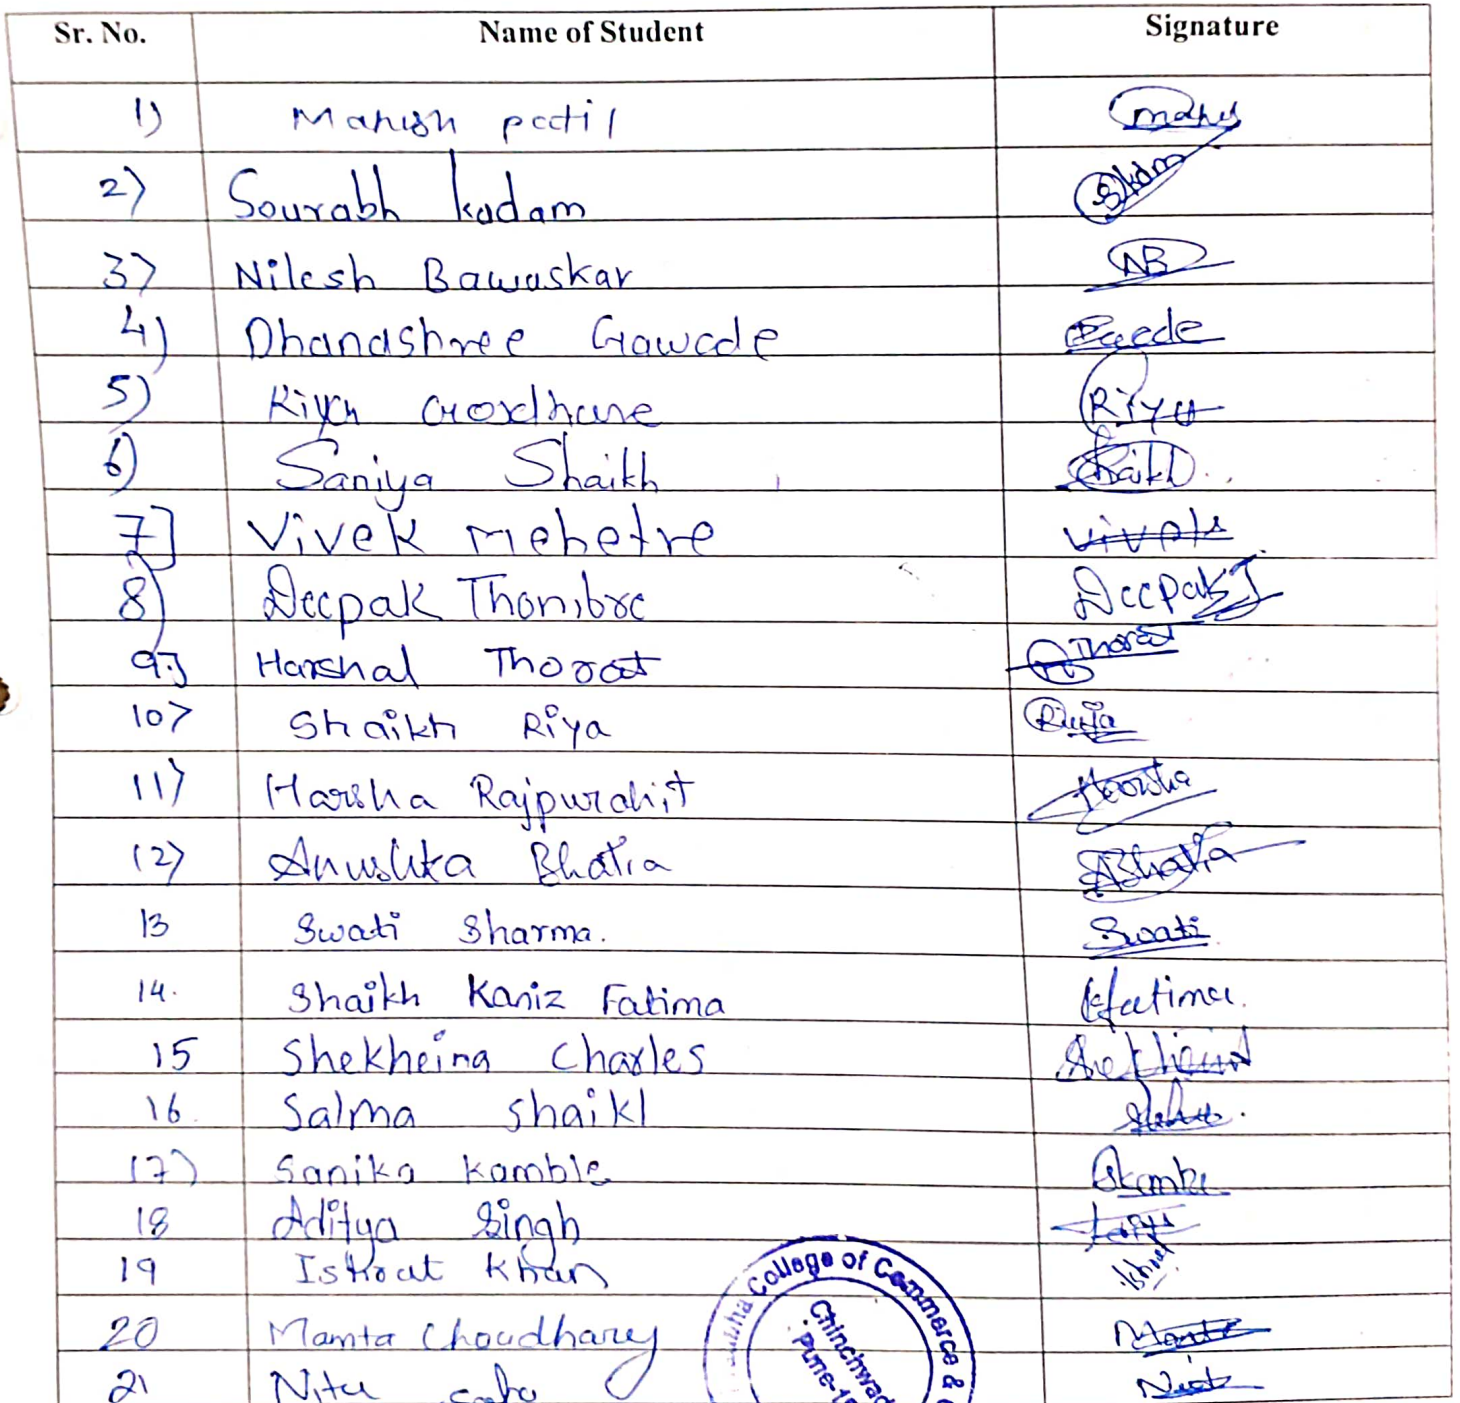 Sr. No. Name of Student Signature
1) Manish patil
2) Sourabh kadam
3) Nilesh Bawaskar NB
4) Dhanashree Gawade
5) Riya Riya
6) Saniya Shaikh Shaikh
7] Vivek Mehetre Vivek
8) Deepak Thombre Deepak T
9.] Harshal Thorat Thorat
10) Shaikh Riya Riya
11) Harsha Rajpurohit Harsha
12) Anushka Bhatia ABhatia
13 Swati Sharma. Swati
14. Shaikh Kaniz Fatima Kfatima.
15 Shekheina Charles Shekheina
16. Salma Shaikh
17) Sanika Kamble
18 Aditya Singh
19 Ishrat Khan Ishrat
20 Mamta Choudhary Mamta
21 Nitu
College of Commerce &
Chinchwad
Pune-1